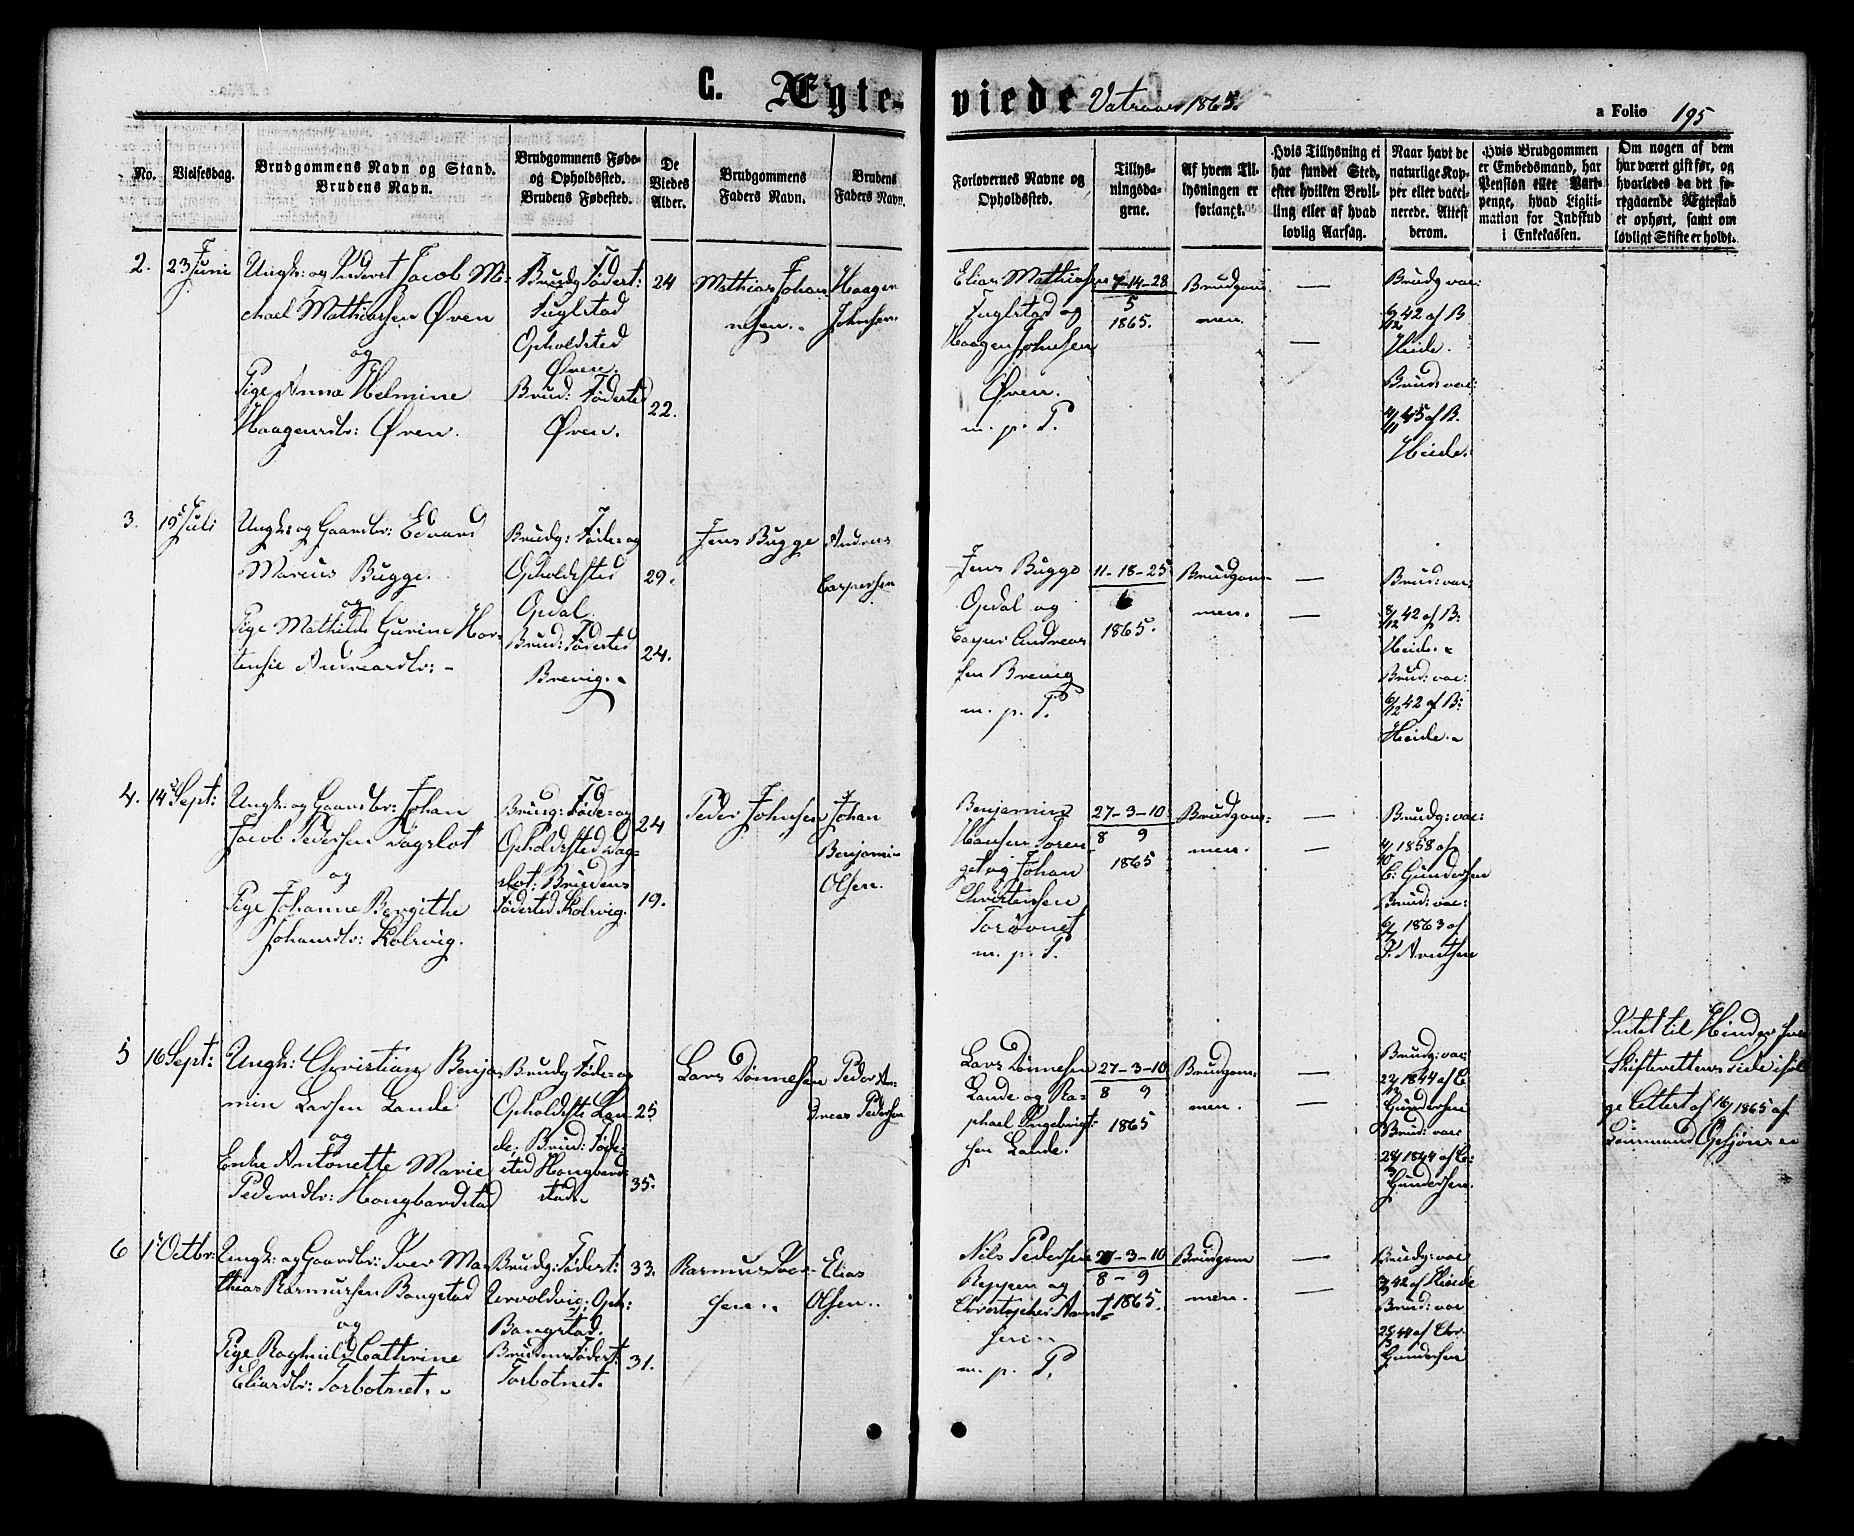 C. Ægte-
viede Vatraaer 1865.
a Folio 195
No.
Vielsesdag.
Brudgommens Navn og Stand.
Brudens Navn.
Brudgommens Føde-
og Opholdssted.
Brudens Fødested.
De
Viedes
Alder.
Brudgommens
Faders Navn.
Brudens
Faders Navn.
Forlovernes Navne og
Opholdssted.
Tillys-
ningsda-
gene.
Af hvem Til-
lysningen er
forlangt.
Hvis Tillysning ei
har fundet Sted,
efter hvilken Bevil-
ling eller af hvad
lovlig Aarsag.
Naar havt de
naturlige Kop-
per eller vacci-
nerede. Attest
derom.
Hvis Brudgommen
er Embedsmand, har
Pension eller Vart-
penge, hvad Ligiti-
mation for Indskud
i Enkekassen.
Om nogen af dem
har været gift før, og
hvorledes da det fo-
regaaende Ægteskab
er ophørt, samt om
lovligt Skifte er holdt.
2.
23 Juni
Ungk: og Inderst Jacob Mi-
chael Mathiassen Øven
og
Pige Anna Helmine
Haagensdtr: Øven.
Brudg Fødest:
Fuglstad
Opholdsted
Øven.
Brud: Fødested
Øven.
24
22.
Mathias Johan
nesen.
Haagen
Johnsen.
Elias Mathiassen
Fuglstad og
Haagen Johnsen
Øven.
m. p. P.
7-14-28
5
1865.
Brudgom-
men.
—
—
Brudg vac:
6/12 42 af B
Heide.
Brud: vac:
4/11 45 af B.
Heide.
3.
19 Juli
Ungk: og Gaardbr: Edvard
Marius Bugge.
og
Pige Mathilde Gurine Hor-
tensie Andreasdtr: -
Brudg: Føde- og
Opholdssted
Opdal
Brud: Fødested
Brevig.
29.
24.
Jens Bugge
Andreas
Caspersen
Jens Bugge
Opdal og
Casper Andreas
sen Brevig
m. p. P.
11-18-25
6
1865.
Brudgom-
men.
—
—
Brud: vac:
8/12 42 af B:
Heide.
Brud: vac:
6/12 42 af B:
Heide.
4.
14 Sept:
Ungk: og Gaardbr: Johan
Jacob Pedersen Dagslot
og
Pige Johanne Bergithe
Johansdtr: Kolvig.
Brudg: Føde- og
Opholdssted Dag-
slot: Brudens
Fødested Kolvig.
24
19.
Peder Johnsen
Johan
Benjamin
Olsen.
Benjamin
Hansen Toren
get og Johan
Christensen
Torøvnet
m. p. P.
27-3-10
8 9
1865
Brudgom-
men.
—
—
Brudg: vac:
4/10 1858 af
C: Gundersen
Brud: vac:
1863 af
P. Arentsen
5
16 Sept:
Ungk: Christian Benja-
min Larsen Lande
og
Enke Antonette Marie
Pedersdtr: Hongbardstad
Brudg Føde- og
Opholdsste Lan
de, Brud: Føde-
sted Hongbard-
stad
25
35.
Lars Tønnesen
Peder An-
dreas Pedersen
Lars Tønnesen
Lande og Ra-
phael Ingebrigt-
sen Lande.
27-3-10
8 9
1865
Brudgom-
men.
—
—
Brudg: vac:
1844 af C:
Gundersen
Brud: vac:
1844 af C:
Gundersen.
Intet til Hinder fra
Skifterettens Side iføl-
ge Attest af 16/9 1865 af
Lensmand Gesjøn
6
1 Octbr:
Ungk: og Gaardbr: Iver Ma-
thias Rasmussen Bangstad
og
Pige Ragnhild Cathrine
Eliasdtr: Torbotnet.
Brudg: Fødest:
Urvoldvig: Oph:
Bangstad.
Brudens Fødest:
Torbotnet.
33.
31.
Rasmus Iver-
sen
Elias
Olsen
Nils Pedersen
Reppen og
Christopher Arnt-
sen
m. p. P.
27-3-10
8-9
1865.
Brudgom
men.
—
—
Brudg: vac
42 af Heide
Brud: vac
44 af Chr.
Gundersen